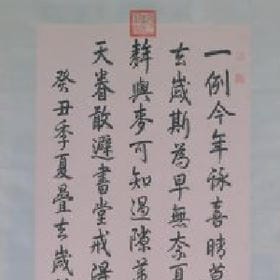 一例今年詠喜晴首
玄歲斯為早無奈夏
麰與麥可知過隙
天眷敢避書堂戒
癸丑季夏疊去歲